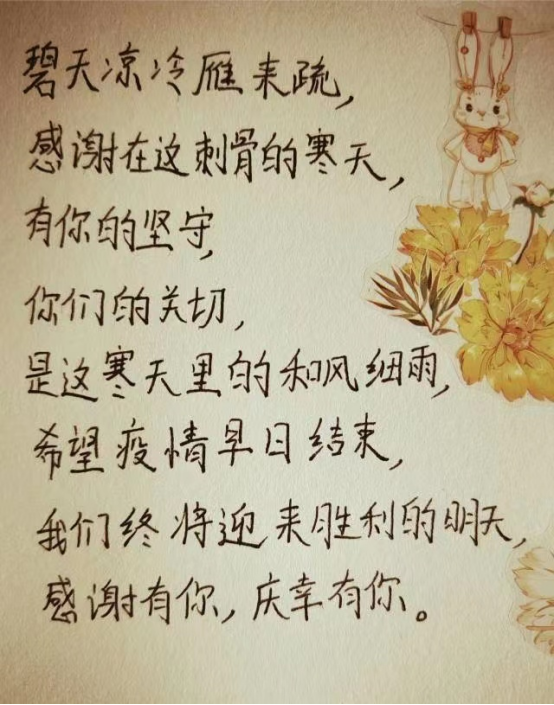 碧天凉冷雁来疏,
感谢在这刺骨的寒天,
有你的坚守,
你们的关切,
是这寒天里的和风细雨,
希望疫情早日结束,
我们终将迎来胜利的明天,
感谢有你,庆幸有你。